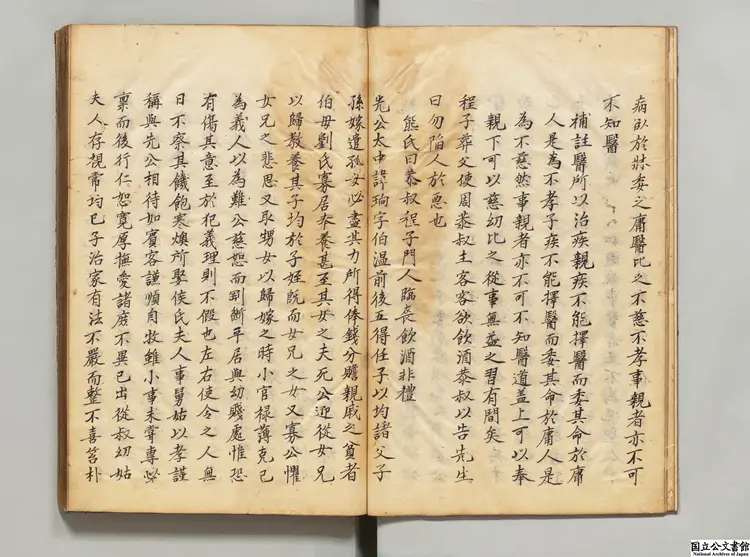 病臥於牀委之庸醫比之不慈不孝事親者亦不可
不知醫
補註醫所以治疾親疾不能擇醫而委其命於庸
人是為不孝子疾不能擇醫而委其命於庸人是
為不慈然事親者亦不可不知醫道盖上可以奉
親下可以慈幼比之從事無益之習有間矣
程子葬父使周恭叔主客客欲飲酒恭叔以告先生
曰勿陷人於惡也
熊氏曰恭叔程子門人臨喪飲酒非禮
先公太中諱珦字伯溫前後五得任子以均諸父子
孫嫁遣孤女必盡其力所得俸錢分贍親戚之貧者
伯母劉氏寡居奉養甚至其女之夫死公迎從女兄
以歸教養其子均於子姪既而女兄之女又寡公懼
女兄之悲思又取甥女以歸嫁之時小官祿薄克己
為義人以為難公慈恕而剛斷平居與幼賤處惟恐
有傷其意至於犯義理則不假也左右使令之人無
日不察其饑飽寒燠所娶侯氏夫人事舅姑以孝謹
稱與先公相待如賓客謙順自牧雖小事未嘗專必
稟而後行仁恕寬厚撫愛諸庶不異己出從叔幼姑
夫人存視常均己子治家有法不嚴而整不喜笞朴
国立公文書館
National Archives of Japan